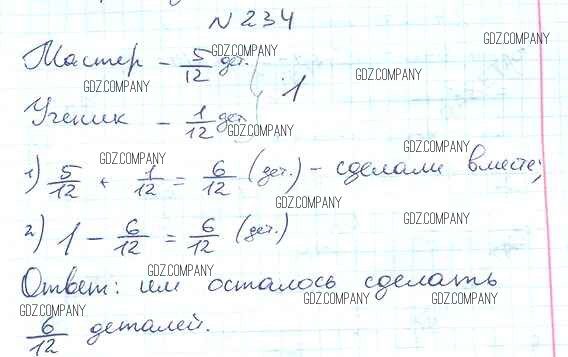 N 234
GDZ.COMPANY
GDZ.COMPANY
Мастер - 5/12 дет.
GDZ.COMPANY
GDZ.COMPANY
1
Ученик - 1/12 дет.
GDZ.COMPANY
GDZ.COMPANY
GDZ.COMPANY
1) 5/12 + 1/12 = 6/12 (дет.) - сделали вместе;
GDZ.COMPANY
GDZ.COMPANY
2) 1 - 6/12 = 6/12 (дет.)
GDZ.COMPANY
Ответ: им осталось сделать
GDZ.COMPANY GDZ.COMPANY GDZ.COMPANY
6/12 деталей.